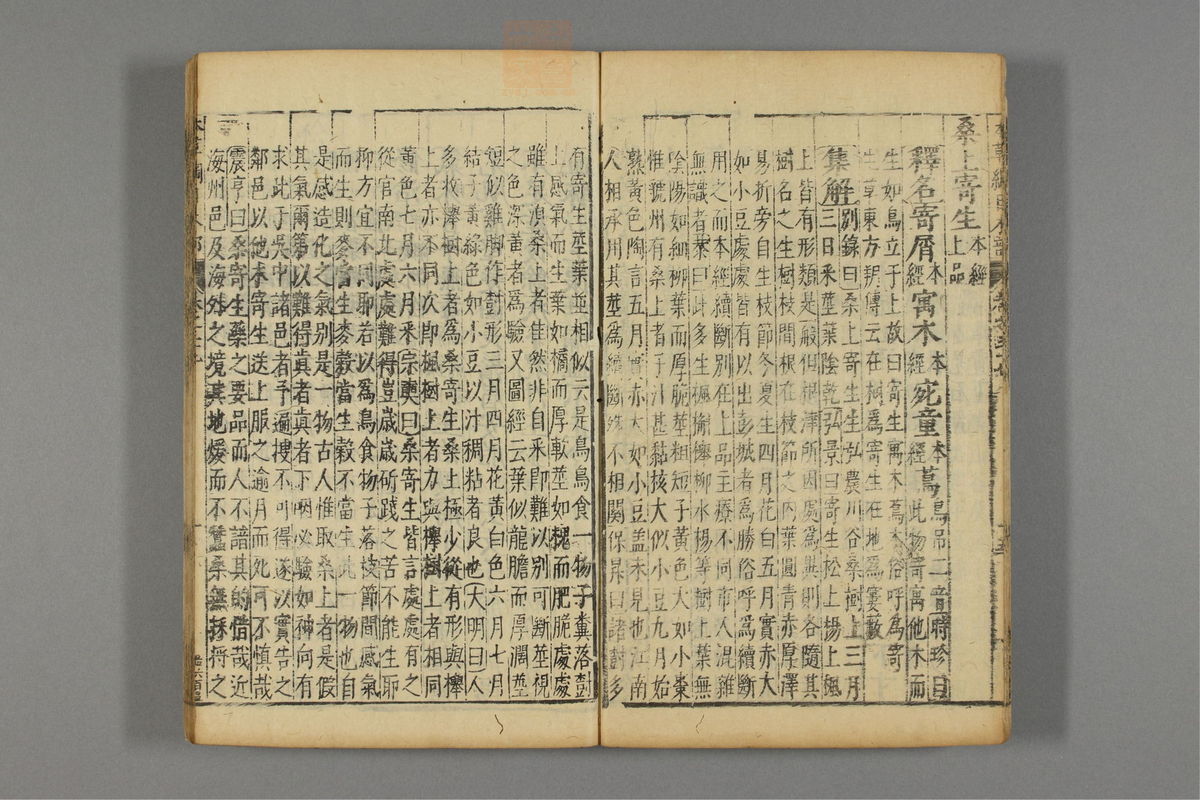 桑上寄生本經上品
釋名寄屑本經寓木本經宛童本經蔦鳥吊二音時珍曰此物寄寓他木而
生如鳥立于上故曰寄生寓木蔦木俗呼為寄
生草東方朔傳云在樹為寄生在地為窶藪
集解別錄曰桑上寄生生弘農川谷桑樹上三月
三日采莖葉陰乾弘景曰寄生松上楊上楓
樹上皆有形類是一般但根津所因處為異則各隨其
樹名之生樹枝間根在枝節之內葉圓青赤厚澤
易折旁自生枝節冬夏生四月花白五月實赤大
如小豆處處皆有以出彭城者為勝俗呼為續斷
用之而本經續斷別在上品主療不同市人混雜
無識者恭曰此多生楓槲櫸柳水楊等樹上葉無
陰陽如細柳葉而厚脆莖粗短子黃色大如小棗
惟虢州有桑上者子汁甚黏核大似小豆九月始
熟黃色陶言五月實赤大如小豆蓋未見也江南
人相承用其莖為續斷殊不相關保昇曰諸樹多
有寄生莖葉並相似云是烏鳥食一物子糞落樹
上感氣而生葉如橘而厚軟莖如槐而肥脆處處
雖有須桑上者佳然非自采即難以別可斷莖視
之色深黃者為驗又圖經云葉似龍膽而厚闊莖
短似雞脚作樹形三月四月花黃白色六月七月
結子黃綠色如小豆以汁稠粘者良也大明曰人
多收櫸樹上者為桑寄生桑上極少縱有形與櫸
上者亦不同次即楓樹上者力與櫸樹上者相同
黃色七月六月采宗奭曰桑寄生皆言處處有之
從官南北處處難得豈歲歲斫踐之苦不能生耶
抑方宜不同耶若以為鳥食物子落枝節間感氣
而生則麥當生麥穀當生穀不當生此一物也自
是感造化之氣別是一物古人惟取桑上者是假
其氣爾第以難得真者真者下咽必驗如神向有
求此于吳中諸邑者予遍搜不可得遂以實告之
鄰邑以他木寄生送上服之逾月而死可不慎哉
震亨曰桑寄生藥之要品而人不諳其的惜哉近
海州邑及海外之境其地煖而不蠶桑無採捋之